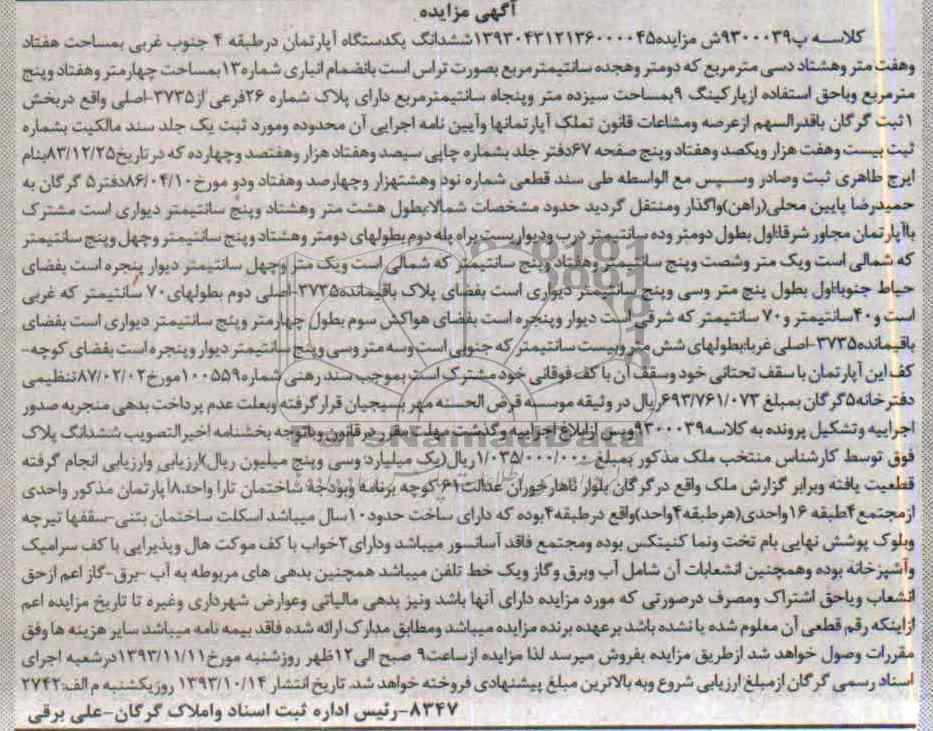 آگهی مزایده
کلاسه پ۹۳۰۰۰۳۹ش مزایده۱۳۹۳۰۴۳۱۲۱۳۶۰۰۰۰۴۵ششدانگ یکدستگاه آپارتمان درطبقه ۴ جنوب غربی بمساحت هفتاد
وهفت متر وهشتاد دسی مترمربع که دومتر وهجده سانتیمترمربع بصورت تراس است بانضمام انباری شماره۱۳بمساحت چهارمتر وهفتاد وپنج
مترمربع وباحق استفاده ازپارکینگ ۹بمساحت سیزده متر وپنجاه سانتیمترمربع دارای پلاک شماره ۲۶فرعی از۳۷۳۵-اصلی واقع دربخش
۱ثبت گرگان باقدرالسهم ازعرصه ومشاعات قانون تملک آپارتمانها وآیین نامه اجرایی آن محدوده ومورد ثبت یک جلد سند مالکیت بشماره
ثبت بیست وهفت هزار ویکصد وهفتاد وپنج صفحه ۶۷دفتر جلد بشماره چاپی سیصد وهفتاد هزار وهفتصد وچهارده که در تاریخ۸۳/۱۲/۲۵بنام
ایرج طاهری ثبت وصادر وسپس مع الواسطه طی سند قطعی شماره نود وهشتهزار وچهارصد وهفتاد ودو مورخ۸۶/۰۴/۱۰دفتر۵ گرگان به
حمیدرضا پایین محلی(راهن)واگذار ومنتقل گردید حدود مشخصات شمالابطول هشت متر وهشتاد وپنج سانتیمتر دیواری است مشترک
باآپارتمان مجاور شرقااول بطول دومتر وده سانتیمتر درب ودیواریست براه پله دوم بطولهای دومتر وهشتاد وپنج سانتیمتر وچهل وپنج سانتیمتر
که شمالی است ویک متر وشصت وپنج سانتیمتر وهفتاد وپنج سانتیمتر که شمالی است ویک متر وچهل سانتیمتر دیوار پنجره است بفضای
حیاط جنوبااول بطول پنج متر وسی وپنج سانتیمتر دیواری است بفضای پلاک باقیمانده۳۷۳۵-اصلی دوم بطولهای۷۰ سانتیمتر که غربی
است و۴۰سانتیمتر و۷۰ سانتیمتر که شرقی است دیوار وپنجره است بفضای هواکش سوم بطول چهارمتر وپنج سانتیمتر دیواری است بفضای
باقیمانده۳۷۳۵-اصلی غربابطولهای شش متر وبیست سانتیمتر که جنوبی است وسه متر وسی وپنج سانتیمتر دیوار وپنجره است بفضای کوچه-
کف این آپارتمان با سقف تحتانی خود وسقف آن با کف فوقانی خود مشترک است بموجب سند رهنی شماره۱۰۰۵۵۹مورخ۸۷/۰۲/۰۲تنظیمی
دفترخانه۵گرگان بمبلغ ۶۹۳/۷۶۱/۰۷۳ریال در وثیقه موسسه قرض الحسنه مهر بسیجیان قرار گرفته وبعلت عدم پرداخت بدهی منجربه صدور
اجراییه وتشکیل پرونده به کلاسه۹۳۰۰۰۳۹وپس ازابلاغ اجراییه وگذشت مهلت مقرر درقانون وباتوجه بخشنامه اخیرالتصویب ششدانگ پلاک
فوق توسط کارشناس منتخب ملک مذکور بمبلغ ۱/۰۳۵/۰۰۰/۰۰۰ریال(یک میلیارد وسی وپنج میلیون ریال)ارزیابی وارزیابی انجام گرفته
قطعیت یافته وبرابر گزارش ملک واقع درگرگان بلوار ناهارخوران عدالت۶۱کوچه برنامه وبودجه ساختمان تارا واحد۸آپارتمان مذکور واحدی
ازمجتمع۴طبقه ۱۶واحدی(هرطبقه۴واحد)واقع درطبقه۴بوده که دارای ساخت حدود۱۰سال میباشد اسکلت ساختمان بتنی-سقفها تیرچه
وبلوک پوشش نهایی بام تخت ونما کنیتکس بوده ومجتمع فاقد آسانسور میباشد ودارای۲خواب با کف موکت هال وپذیرایی با کف سرامیک
وآشپزخانه بوده وهمچنین انشعابات آن شامل آب وبرق وگاز ویک خط تلفن میباشد همچنین بدهی های مربوطه به آب -برق-گاز اعم ازحق
انشعاب ویاحق اشتراک ومصرف درصورتی که مورد مزایده دارای آنها باشد ونیز بدهی مالیاتی وعوارض شهرداری وغیره تا تاریخ مزایده اعم
ازاینکه رقم قطعی آن معلوم شده یا نشده باشد برعهده برنده مزایده میباشد ومطابق مدارک ارائه شده فاقد بیمه نامه میباشد سایر هزینه ها وفق
مقررات وصول خواهد شد ازطریق مزایده بفروش میرسد لذا مزایده ازساعت۹ صبح الی۱۲ظهر روزشنبه مورخ۱۳۹۳/۱۱/۱۱درشعبه اجرای
اسناد رسمی گرگان ازمبلغ ارزیابی شروع وبه بالاترین مبلغ پیشنهادی فروخته خواهد شد. تاریخ انتشار ۱۳۹۳/۱۰/۱۴ روزیکشنبه م الف:۲۷۴۲
۸۳۴۷-رئیس اداره ثبت اسناد واملاک گرگان-علی برقی
ParsNamadData